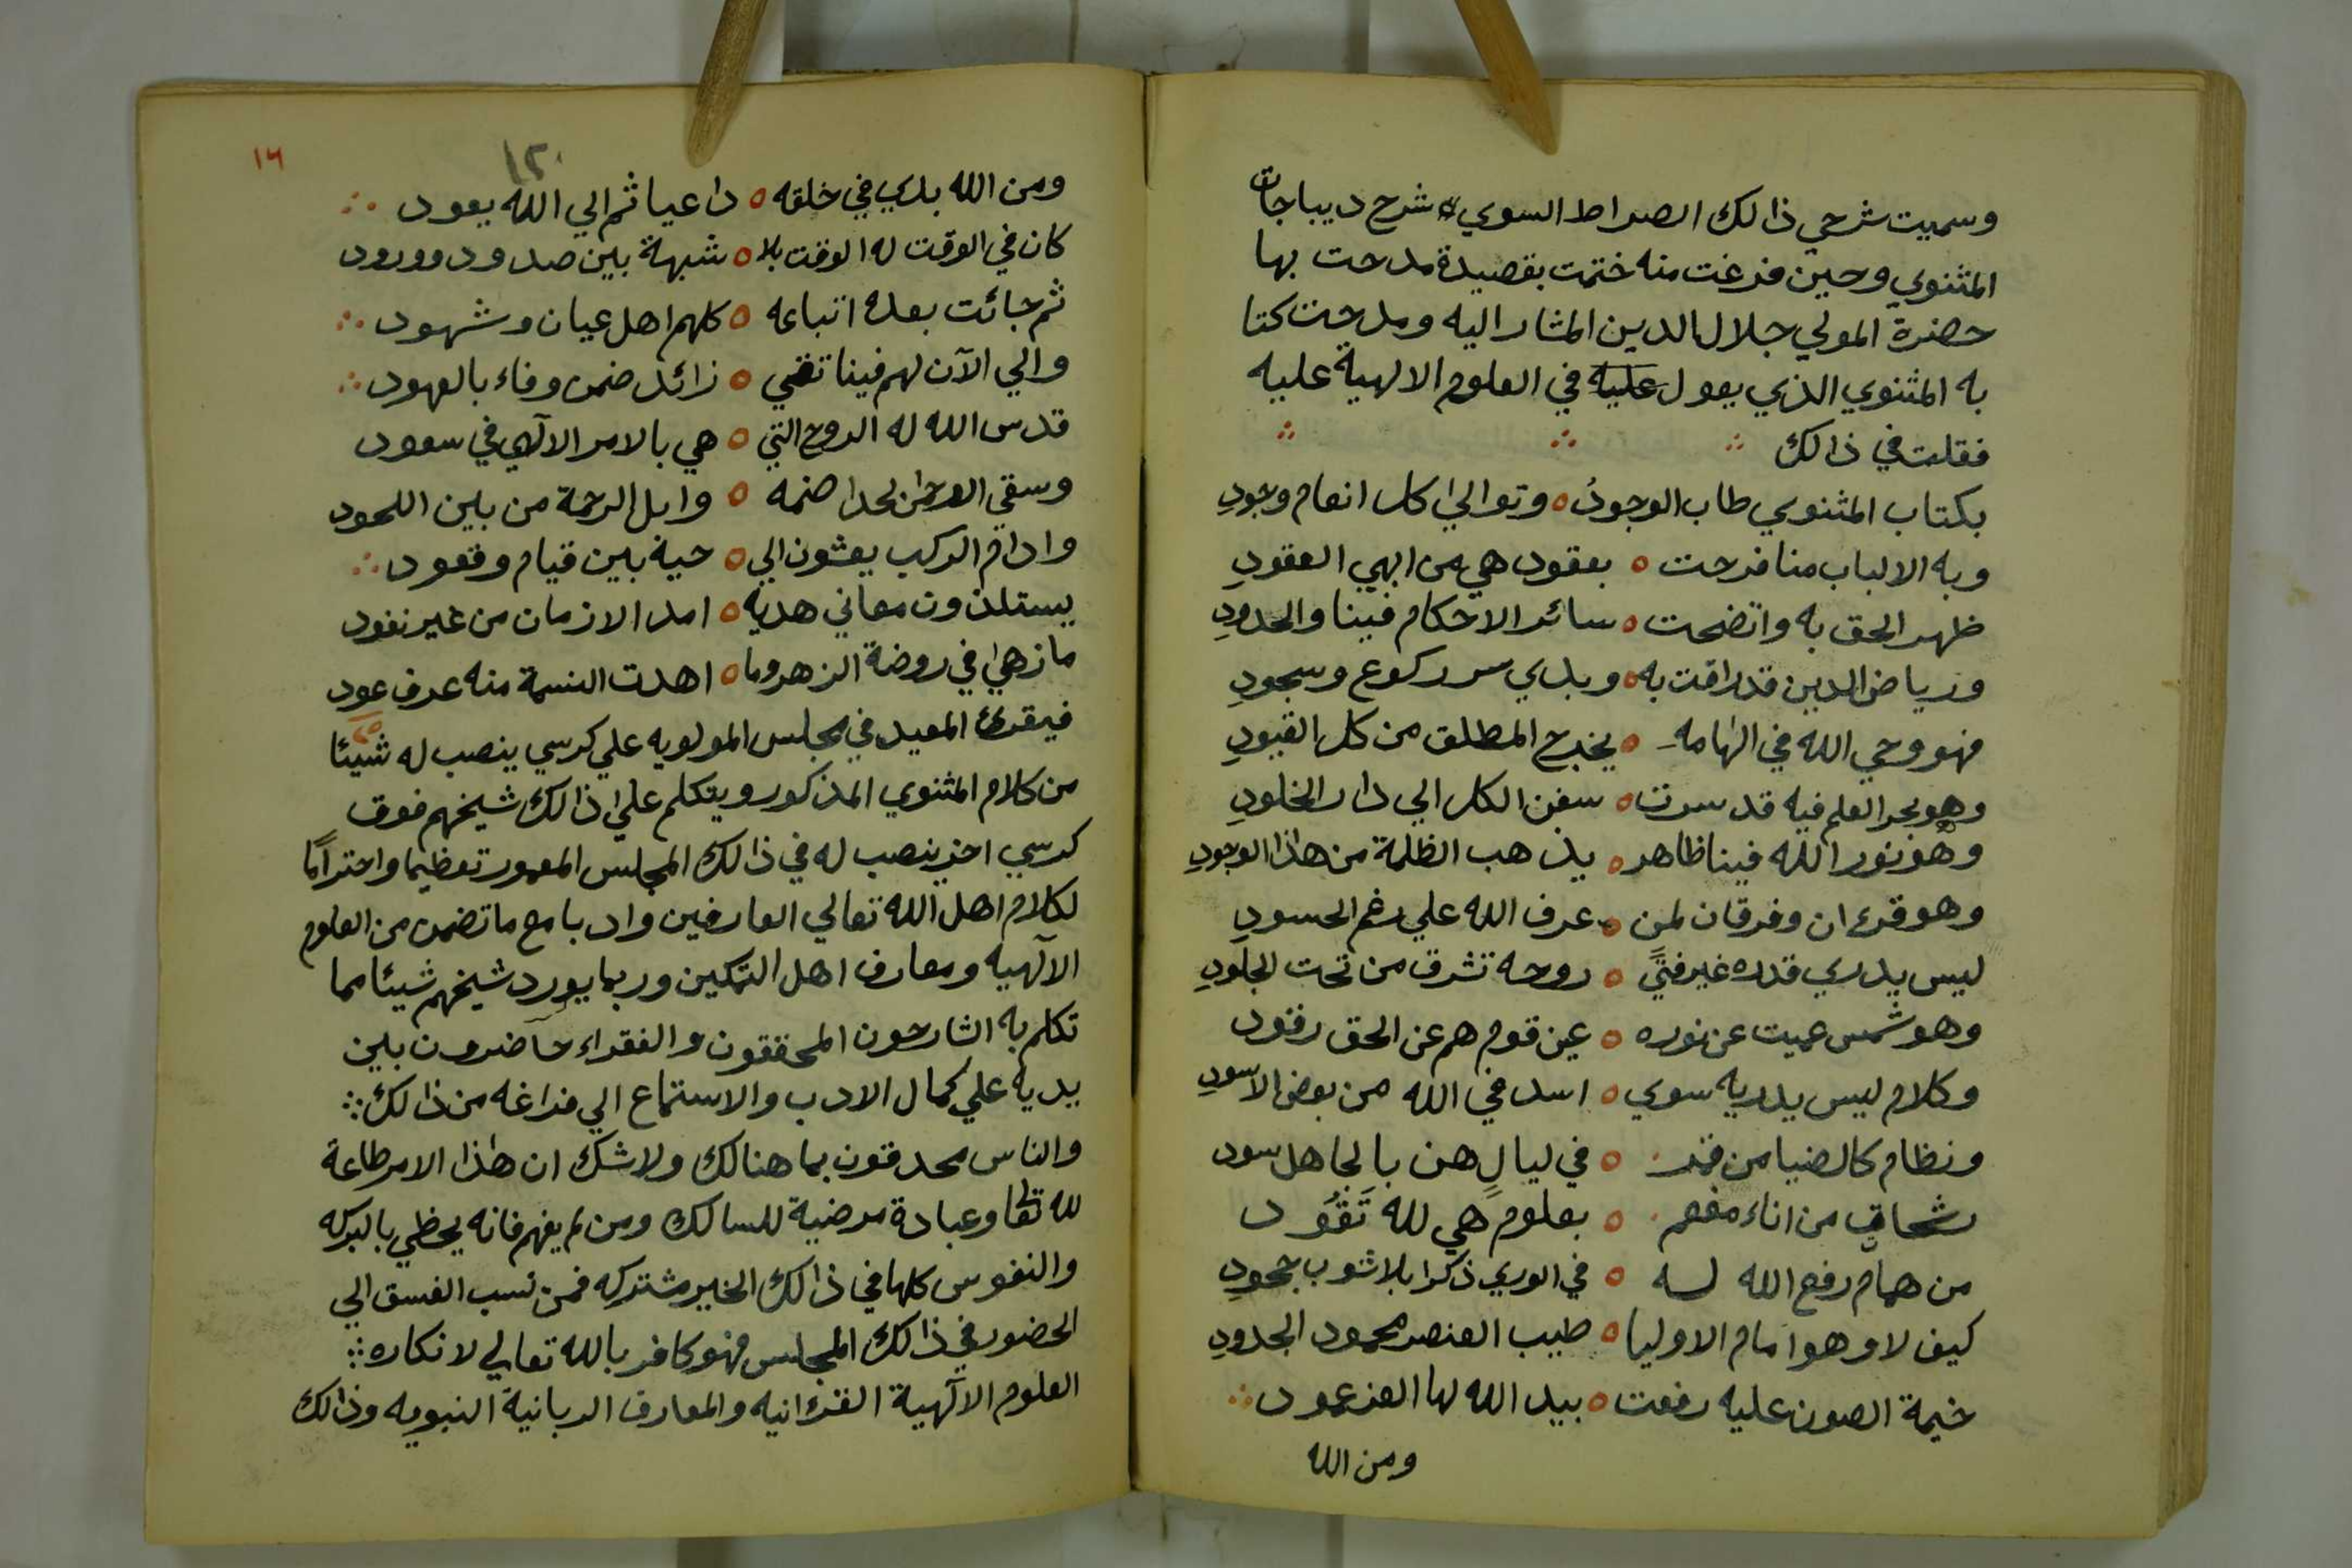 وسميت شرحي ذالك الصراط السوي شرح ديباجات
المثنوي وحين فرغت منه ختمت بقصيدة مدحت بها
حضرة المولي جلال الدين المشار اليه ومدحت كتا
به المثنوي الذي يعول عليه في العلوم الالهية عليه
فقلت في ذالك
بكتاب المثنوي طاب الوجودُ ٥ وتوالي كل انعام وجودِ
وبه الالباب منا فرحت ٥ بعقود هي من ابهي العقودِ
ظهر الحق به واتضحت ٥ سائر الاحكام فينا والحدودِ
ورياض الدين قد راقت به ٥ وبدي سر ركوع وسجودِ
فهو وحي الله في الهامه ٥ يخرج المطلق من كل القيودِ
وهو بحر العلم فيه قد سرت ٥ سفن الكل الي دار الخلودِ
وهو نور الله فينا ظاهر ٥ يذهب الظلمة من هذا الوجودِ
وهو قرءان وفرقان لمن ٥ عرف الله علي رغم الحسودِ
ليس يدري قدره غير فتيً ٥ روحه تشرق من تحت الجلودِ
وهو شمس عميت عن نوره ٥ عين قوم هم عن الحق رقود
وكلام ليس يدريه سوي ٥ اسد في الله من بعض الاسودِ
ونظام كالضيا من قمر ٥ في ليالٍ هن بالجاهل سود
رشحات من اناء مفعم ٥ بعلوم هي لله تَقُود
من همام رفع الله له ٥ في الوري ذكرا بلا شوب جحودِ
كيف لا وهو امام الاوليا ٥ طيب العنصر محمود الجدودِ
خيمة الصون عليه رفعت ٥ بيد الله لها العز عمود
ومن الله
١٦
١٢٠
ومن الله بدي في خلقه ٥ داعيا ثم الي الله يعود
كان في الوقت له الوقت بلا ٥ شبهة بين صدود وورود
ثم جائت بعده اتباعه ٥ كلهم اهل عيان وشهود
والي الآن لهم فينا تقي ٥ زائد ضمن وفاء بالعهود
قدس الله له الروح التي ٥ هي بالامر الآلهي في سعود
وسقي الرحمن لحدا ضمه ٥ وابل الرحمة من بين اللحود
وادام الركب يعشون الي ٥ حيه بين قيام وقعود
يستلذون معاني هديه ٥ امد الازمان من غير نفود
ما زهي في روضة الزهر وما ٥ اهدت النسمة منه عرف عود
فيقرئ المعيد في مجلس المولويه علي كرسي ينصب له شيئا
من كلام المثنوي المذكور ويتكلم علي ذالك شيخهم فوق
كرسي اخر ينصب له في ذالك المجلس المعمور تعظيما واحتراًما
لكلام اهل الله تعالي العارفين وادبا مع ما تضمن من العلوم
الآلهيه ومعارف اهل التمكين وربما يورد شيخهم شيئا مما
تكلم به الشارحون المحققون والفقراء حاضرون بين
يديه علي كمال الادب والاستماع الي فراغه من ذالك
والناس محدقون بما هنالك ولا شك ان هذا الامر طاعة
لله تعا وعبادة مرضية للسالك ومن لم يفهم فانه يحظي بالبركه
والنفوس كلها في ذالك الخير مشتركه فمن نسب الفسق الي
الحضور في ذالك المجلس فهو كافر بالله تعالي لانكاره
العلوم الآلهية القرءانيه والمعارف الربانية النبويه وذالك